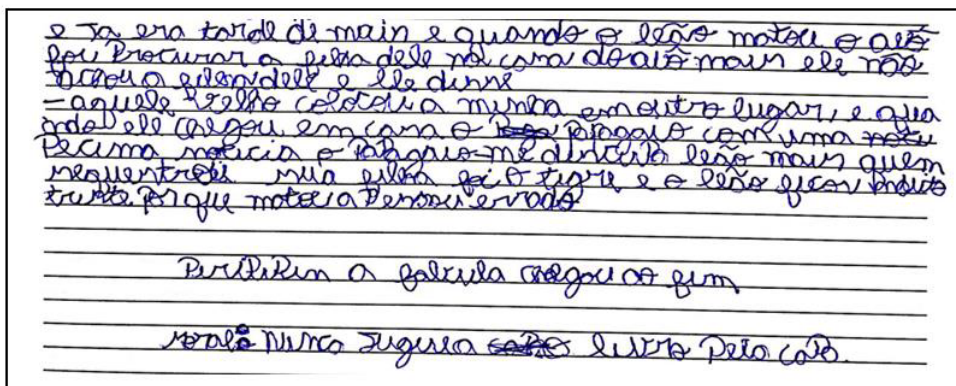 e Ja era tarde di mais e quando o leão matou o avô
foi Procurar a filha dele na casa do avô mais ele não
achou a dele e ele disse
– aquele velho colocou a minha em outro lugar, e qua
ndo ele chegou em casa o papagaio com uma
Pecima noticia o Papagaio leão mais quem
sequentrou sua filha foi o tigre e o leão ficou muito
triste porque matou a Pessou errado
PiriPiRin a fabula chegou ao fim
moral: Nunca Jugue a livro Pela capa.